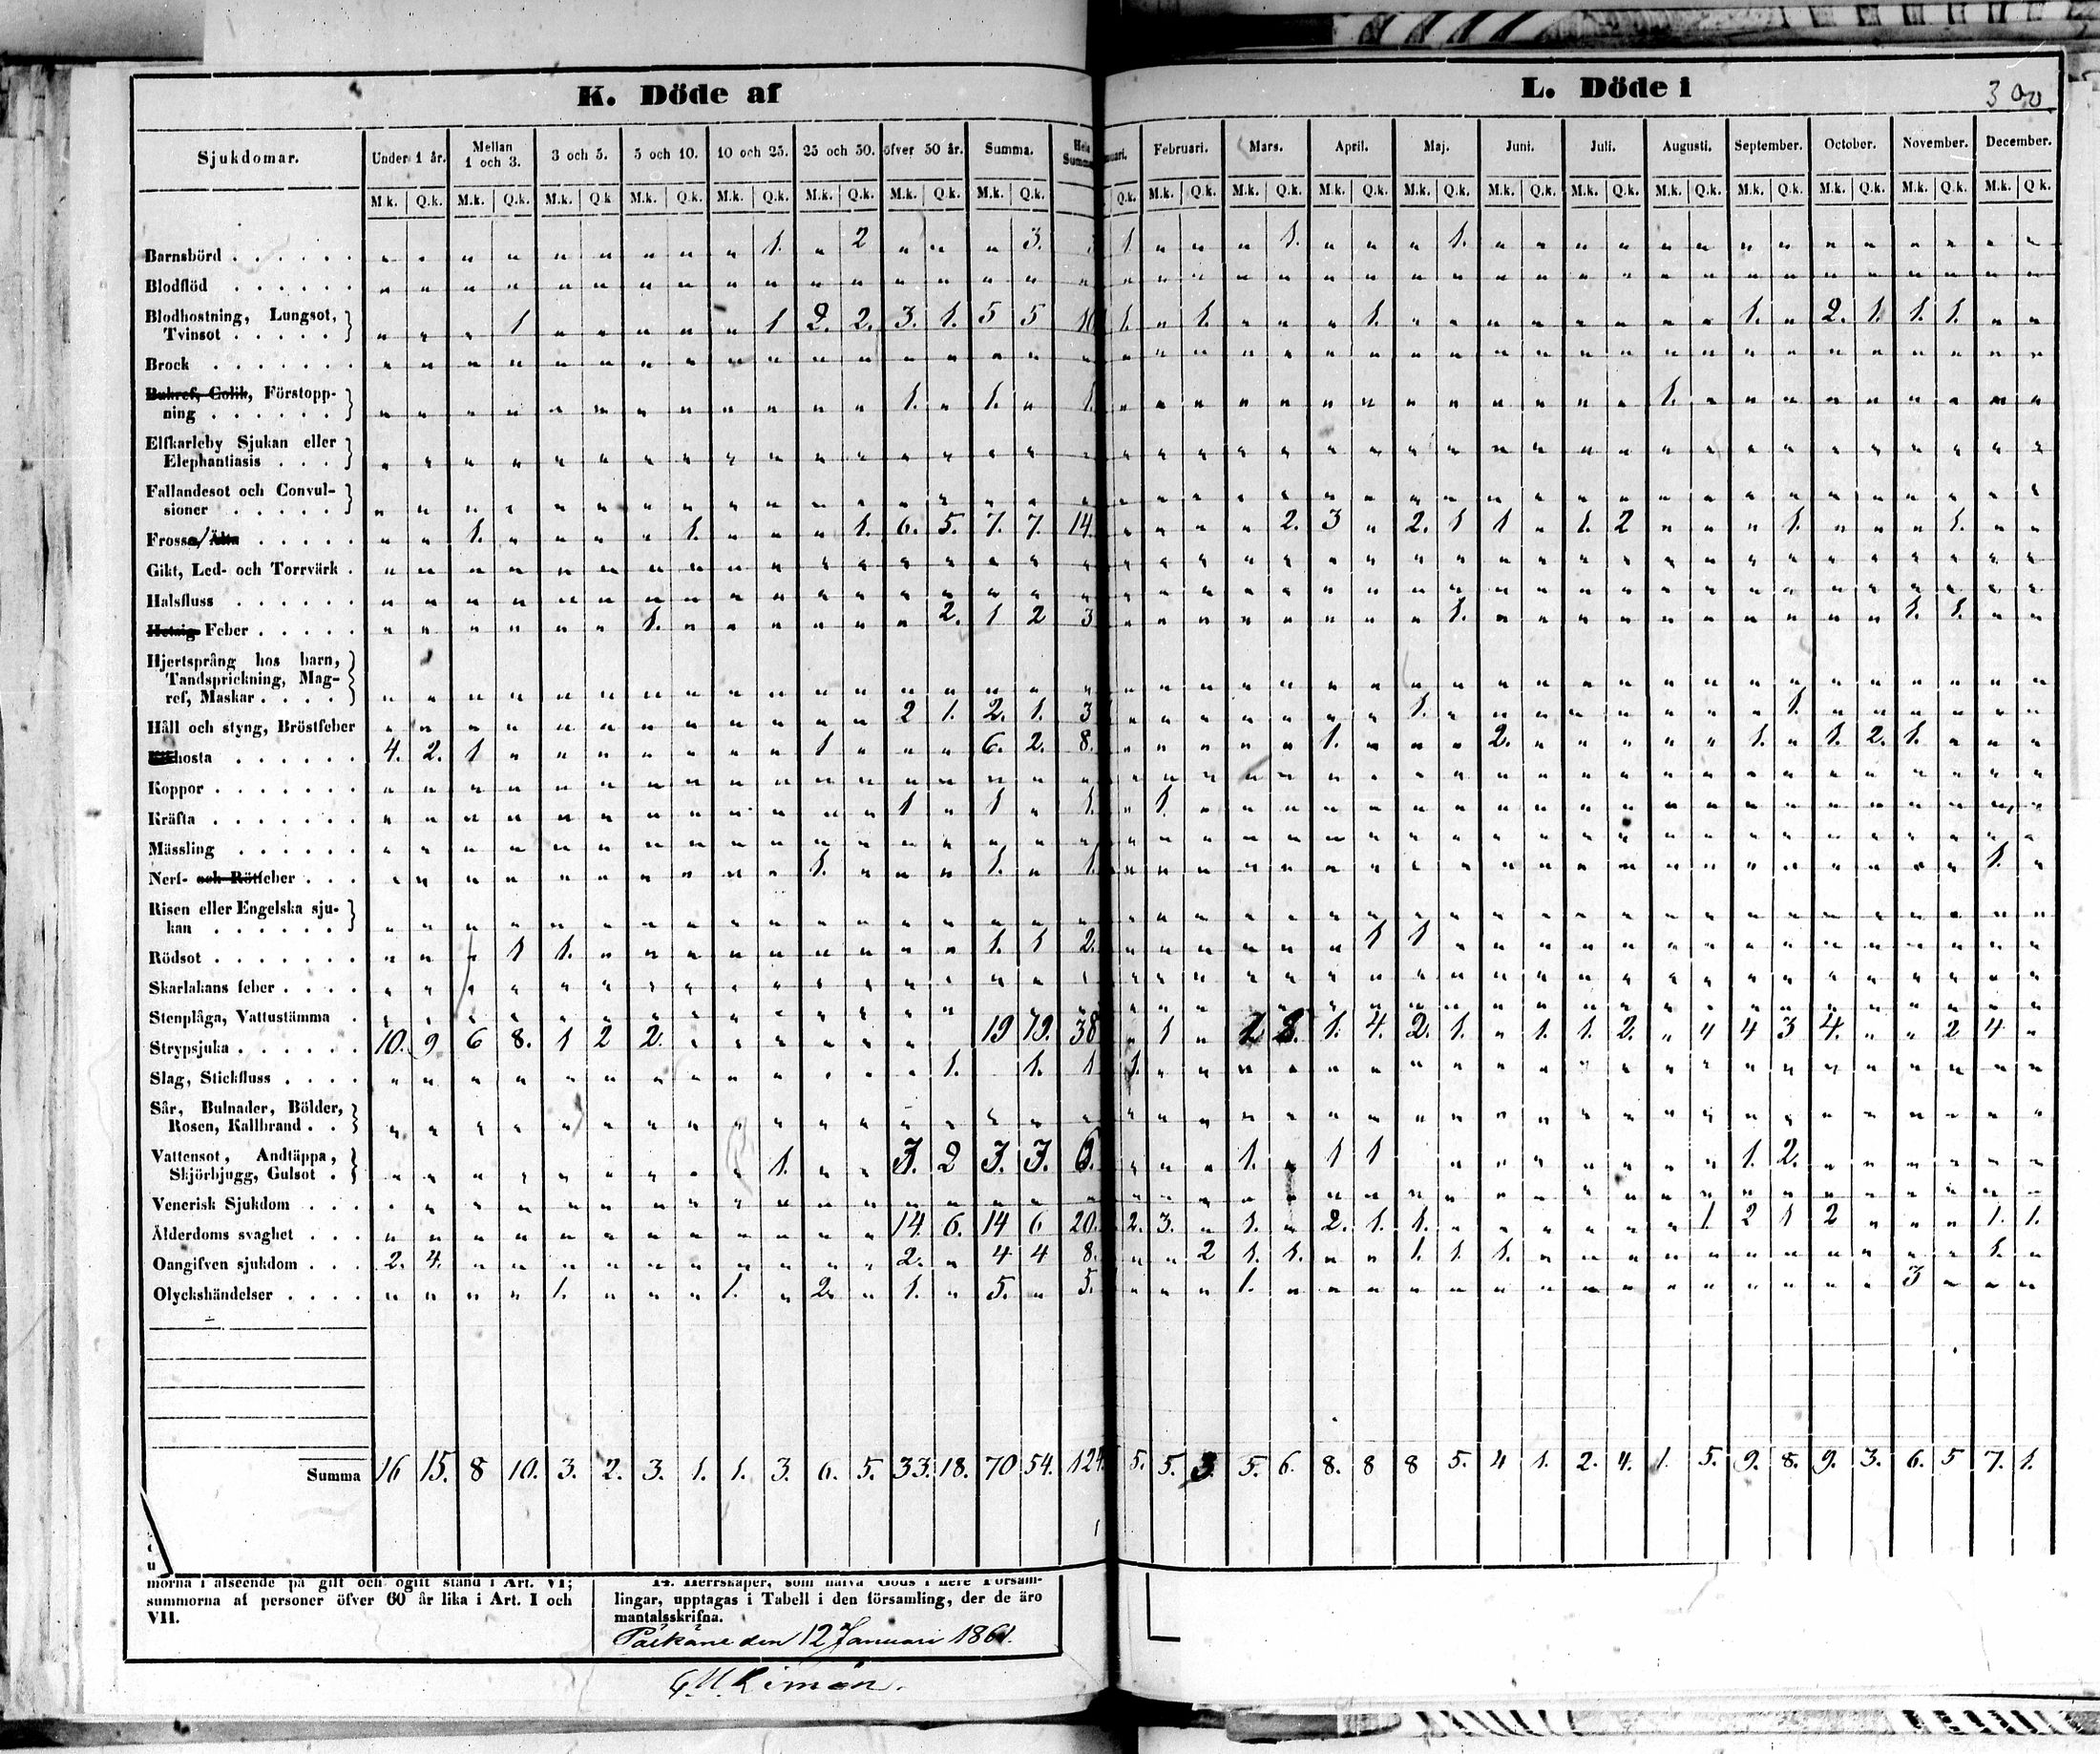 K. Döde af
L. Döde i
300
Sjukdomar. Under 1 år. Mellan 1 och 3. 3 och 5. 5 och 10. 10 och 25. 25 och 50. öfver 50 år. Summa. Hela Summa Februari. Mars. April. Maj. Juni. Juli. Augusti. September. October. November. December.
M.k. Q.k. M.k. Q.k. M.k. Q.k M.k. Q.k. M.k. Q.k. M.k. Q.k. M.k. Q.k. M.k. Q.k. Q.k. M.k. Q.k. M.k. Q.k. M.k. Q.k. M.k. Q.k. M.k. Q.k. M.k. Q.k. M.k. Q.k. M.k. Q.k. M.k. Q.k. M.k. Q.k. M.k. Q k.
Barnsbörd . . . . . . 1. 2 3. 1. 1. 1.
Blodflöd . . . . . .
Blodhostning, Lungsot,
Tvinsot . . . . . 1 1 2. 2. 3. 1. 5 5 10 1. 1. 1. 1. 2. 1. 1. 1.
Brock . . . . . . .
Bukref, Colik, Förstopp-
ning . . . . . . 1. 1. 1. 1.
Elfkarleby Sjukan eller
Elephantiasis . . .
Fallandesot och Convul-
sioner . . . . .
Frossa/Älta . . . . . 1. 1. 1. 6. 5. 7. 7. 14. 2. 3 2. 1 1 1. 2 1. 1.
Gikt, Led- och Torrvärk .
Halsfluss . . . . . .
Hetsig Feber . . . . . 1. 2. 1 2 3 1. 1. 1.
Hjertsprång hos barn,
Tandsprickning, Mag-
ref, Maskar . . . .
Håll och styng, Bröstfeber 2 1. 2. 1. 3 1. 1.
Kikhosta . . . . . . 4. 2. 1 1 6. 2. 8. 1. 2. 1. 1. 2. 1.
Koppor . . . . . . .
Kräfta . . . . . . . 1 1 1. 1.
Mässling . . . . . .
Nerf- och Rötfeber . . . 1. 1. 1. 1.
Risen eller Engelska sju-
kan . . . . . .
Rödsot . . . . . . . 1 1. 1. 1 2. 1 1
Skarlakans feber . . . .
Stenplåga, Vattustämma .
Strypsjuka . . . . . . 10. 9 6 8. 1 2 2. 19 19. 38 1 2 3. 1. 4. 2. 1. 1. 1. 2. 4 3 4. 2 4.
Slag, Stickfluss . . . . 1. 1. 1 1.
Sår, Bulnader, Bölder,
Rosen, Kallbrand . .
Vattensot, Andtäppa,
Skjörbjugg, Gulsot . 1. 3. 2 3. 3. 6. 1. 1 1 1. 2.
Venerisk Sjukdom . . .
Ålderdoms svaghet . . . 14. 6. 14 6 20. 2. 3. 1. 2. 1. 1. 1 2 1 2 1. 1.
Oangifven sjukdom . . . 2. 4. 2. 4 4 8. 2 1. 1. 1. 1. 1. 1.
Olyckshändelser . . . . 1. 1. 2. 1. 5. 5. 1. 3
Summa 16 15. 8 10. 3. 2. 3. 1. 1. 3. 6. 5. 33. 18. 70 54. 124 5. 5. 3. 5. 6. 8. 8 8 5. 4 1. 2. 4. 1. 5. 9. 8. 9. 3. 6. 5 7. 1.
morna i afseende på gift och ogift stånd i Art. VI;
summorna af personer öfver 60 år lika i Art. I och
VII.
14. Herrskaper, som hafva Gods i flere Försam-
lingar, upptagas i Tabell i den församling, der de äro
mantalsskrifna.
Pälkäne den 12 Januari 1861.